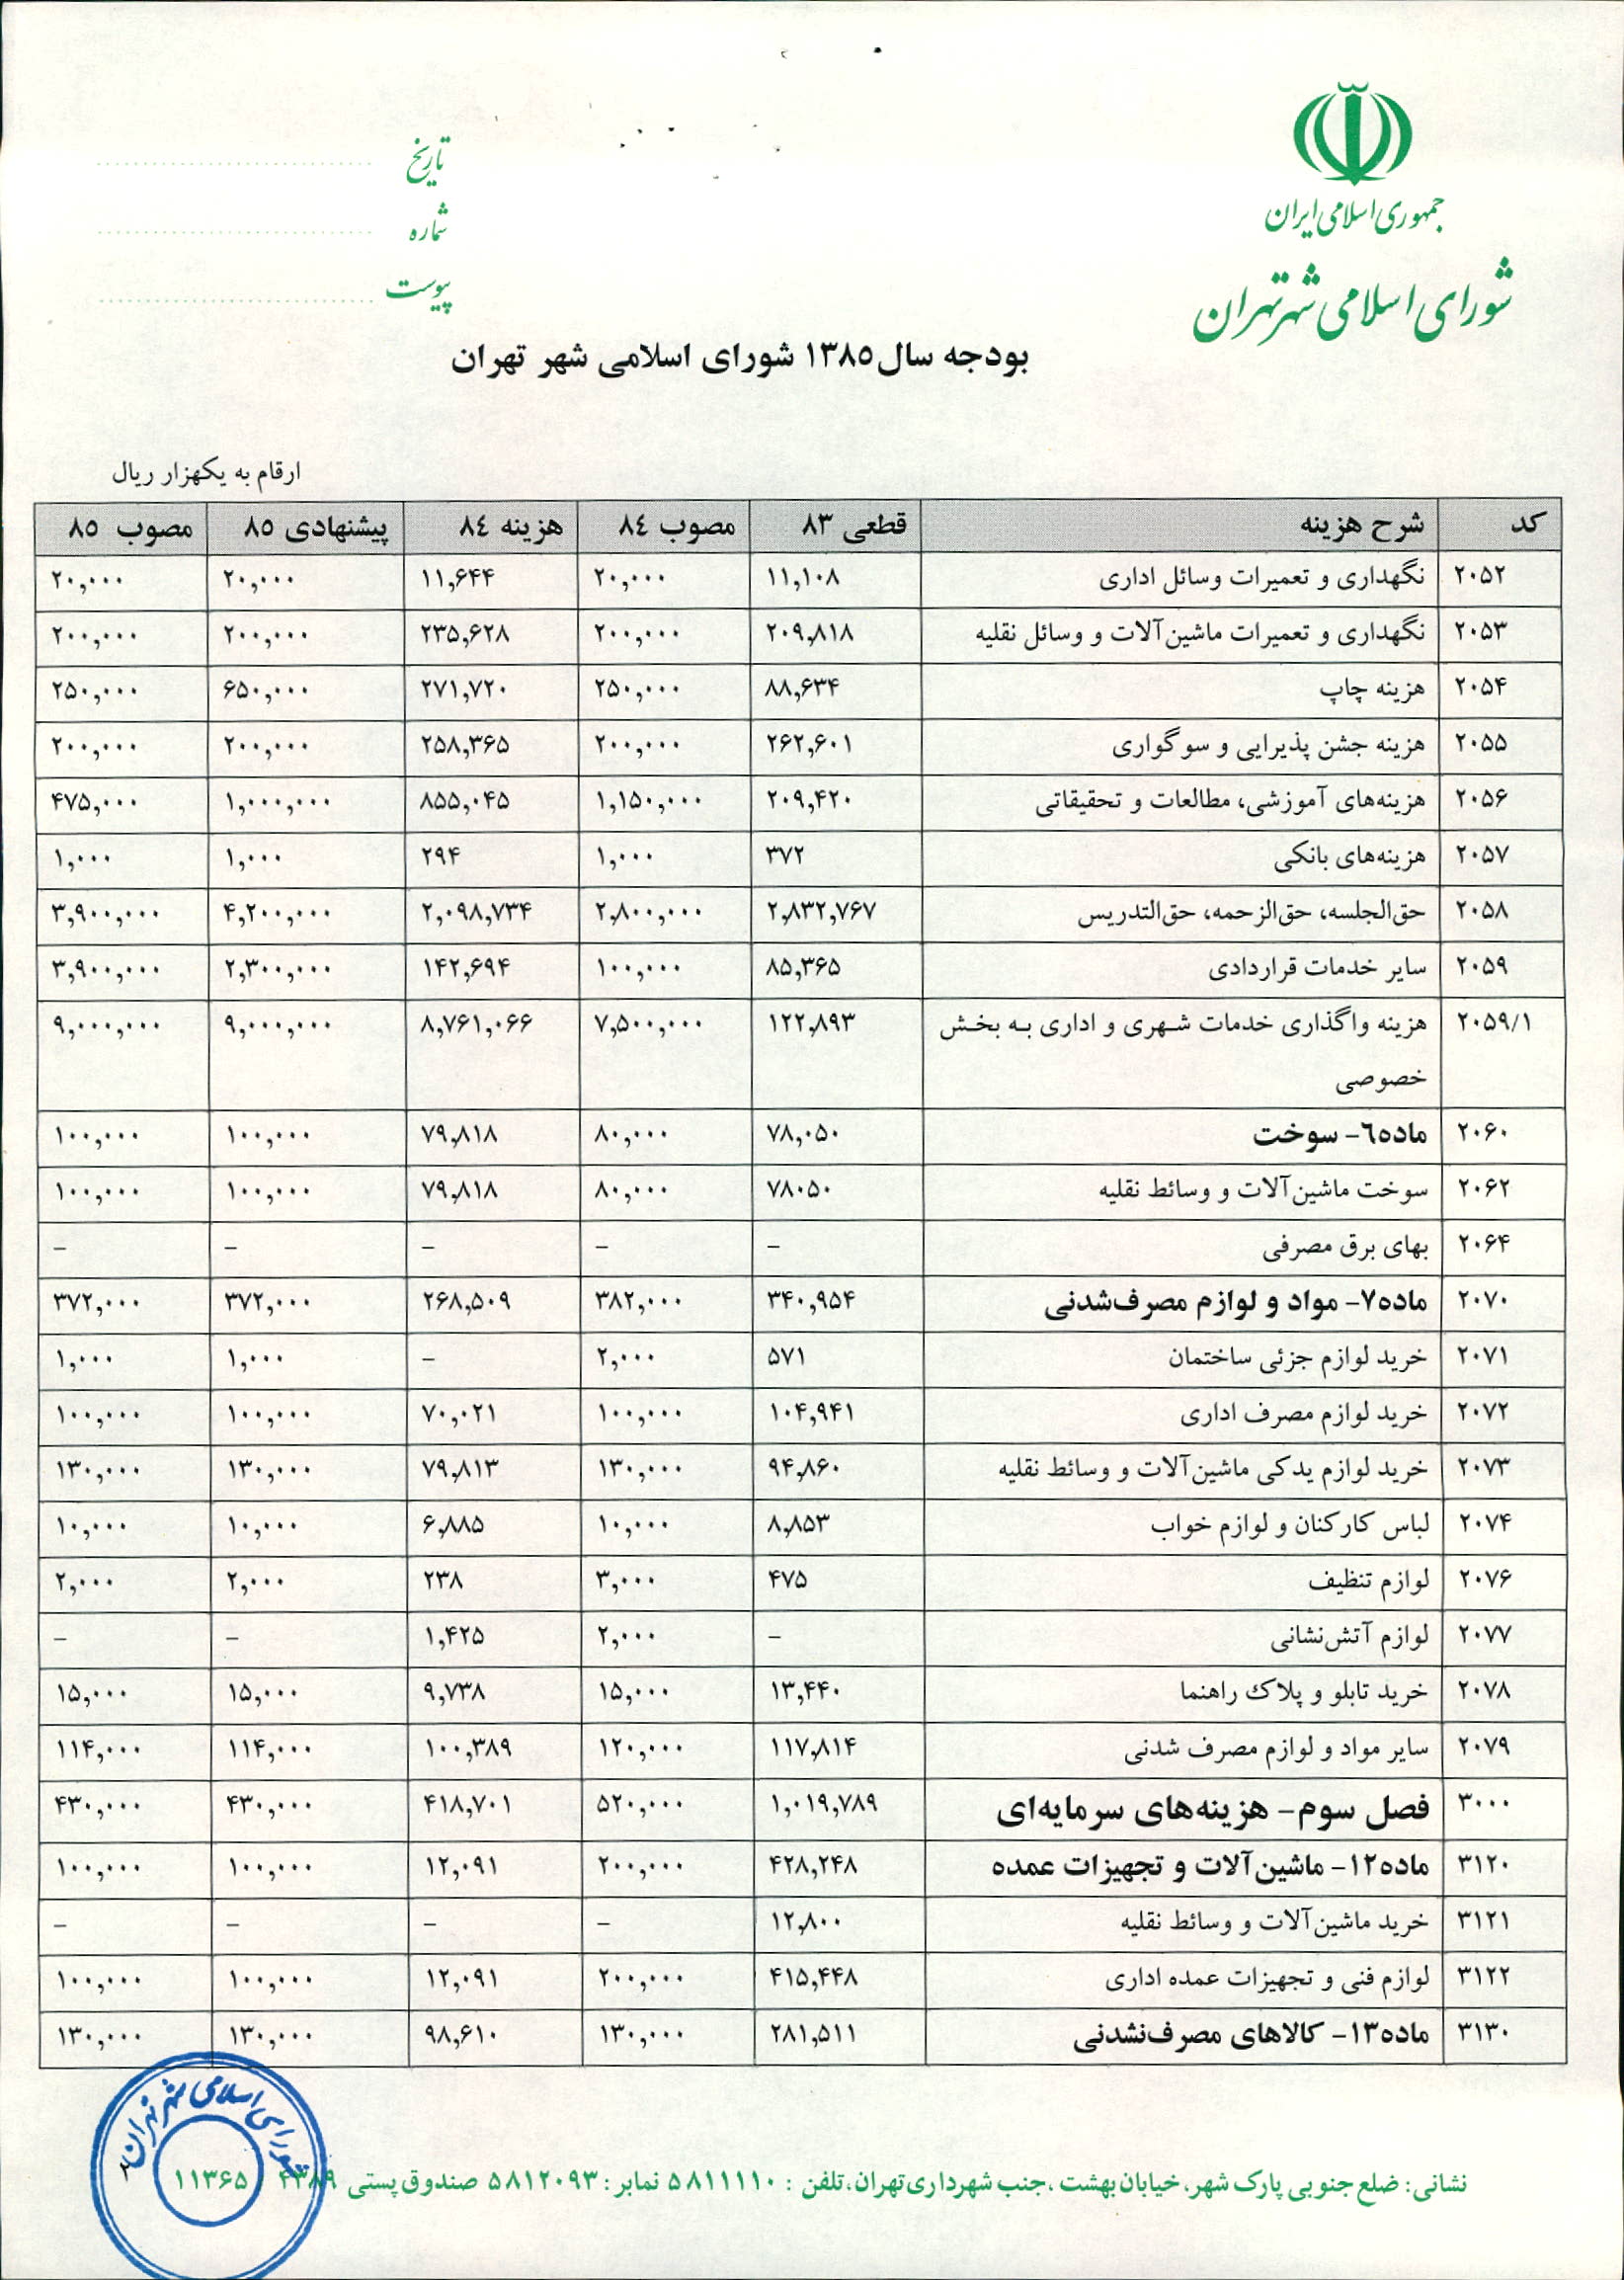 جمهوری اسلامی ایران
شورای اسلامی شهر تهران
تاریخ
شماره
پیوست
بودجه سال ۱۳۸۵ شورای اسلامی شهر تهران
ارقام به یکهزار ریال
کد شرح هزینه قطعی ۸۳ مصوب ۸۴ هزینه ۸۴ پیشنهادی ۸۵ مصوب ۸۵
۲۰۵۲ نگهداری و تعمیرات وسائل اداری ۱۱,۱۰۸ ۲۰,۰۰۰ ۱۱,۶۴۴ ۲۰,۰۰۰ ۲۰,۰۰۰
۲۰۵۳ نگهداری و تعمیرات ماشین‌آلات و وسائل نقلیه ۲۰۹,۸۱۸ ۲۰۰,۰۰۰ ۲۳۵,۶۲۸ ۲۰۰,۰۰۰ ۲۰۰,۰۰۰
۲۰۵۴ هزینه چاپ ۸۸,۶۳۴ ۲۵۰,۰۰۰ ۲۷۱,۷۲۰ ۶۵۰,۰۰۰ ۲۵۰,۰۰۰
۲۰۵۵ هزینه جشن پذیرایی و سوگواری ۲۶۲,۶۰۱ ۲۰۰,۰۰۰ ۲۵۸,۳۶۵ ۲۰۰,۰۰۰ ۲۰۰,۰۰۰
۲۰۵۶ هزینه‌های آموزشی، مطالعات و تحقیقاتی ۲۰۹,۴۲۰ ۱,۱۵۰,۰۰۰ ۸۵۵,۰۴۵ ۱,۰۰۰,۰۰۰ ۴۷۵,۰۰۰
۲۰۵۷ هزینه‌های بانکی ۳۷۲ ۱,۰۰۰ ۲۹۴ ۱,۰۰۰ ۱,۰۰۰
۲۰۵۸ حق‌الجلسه، حق‌الزحمه، حق‌التدریس ۲,۸۳۲,۷۶۷ ۲,۸۰۰,۰۰۰ ۲,۰۹۸,۷۳۴ ۴,۲۰۰,۰۰۰ ۳,۹۰۰,۰۰۰
۲۰۵۹ سایر خدمات قراردادی ۸۵,۳۶۵ ۱۰۰,۰۰۰ ۱۴۲,۶۹۴ ۲,۳۰۰,۰۰۰ ۳,۹۰۰,۰۰۰
۲۰۵۹/۱ هزینه واگذاری خدمات شهری و اداری به بخش ۱۲۲,۸۹۳ ۷,۵۰۰,۰۰۰ ۸,۷۶۱,۰۶۶ ۹,۰۰۰,۰۰۰ ۹,۰۰۰,۰۰۰
خصوصی
۲۰۶۰ ماده۶- سوخت ۷۸,۰۵۰ ۸۰,۰۰۰ ۷۹,۸۱۸ ۱۰۰,۰۰۰ ۱۰۰,۰۰۰
۲۰۶۲ سوخت ماشین‌آلات و وسائط نقلیه ۷۸۰۵۰ ۸۰,۰۰۰ ۷۹,۸۱۸ ۱۰۰,۰۰۰ ۱۰۰,۰۰۰
۲۰۶۴ بهای برق مصرفی – – – – –
۲۰۷۰ ماده۷- مواد و لوازم مصرف‌شدنی ۳۴۰,۹۵۴ ۳۸۲,۰۰۰ ۲۶۸,۵۰۹ ۳۷۲,۰۰۰ ۳۷۲,۰۰۰
۲۰۷۱ خرید لوازم جزئی ساختمان ۵۷۱ ۲,۰۰۰ – ۱,۰۰۰ ۱,۰۰۰
۲۰۷۲ خرید لوازم مصرف اداری ۱۰۴,۹۴۱ ۱۰۰,۰۰۰ ۷۰,۰۲۱ ۱۰۰,۰۰۰ ۱۰۰,۰۰۰
۲۰۷۳ خرید لوازم یدکی ماشین‌آلات و وسائط نقلیه ۹۴,۸۶۰ ۱۳۰,۰۰۰ ۷۹,۸۱۳ ۱۳۰,۰۰۰ ۱۳۰,۰۰۰
۲۰۷۴ لباس کارکنان و لوازم خواب ۸,۸۵۳ ۱۰,۰۰۰ ۶,۸۸۵ ۱۰,۰۰۰ ۱۰,۰۰۰
۲۰۷۶ لوازم تنظیف ۴۷۵ ۳,۰۰۰ ۲۳۸ ۲,۰۰۰ ۲,۰۰۰
۲۰۷۷ لوازم آتش‌نشانی – ۲,۰۰۰ ۱,۴۲۵ – –
۲۰۷۸ خرید تابلو و پلاک راهنما ۱۳,۴۴۰ ۱۵,۰۰۰ ۹,۷۳۸ ۱۵,۰۰۰ ۱۵,۰۰۰
۲۰۷۹ سایر مواد و لوازم مصرف شدنی ۱۱۷,۸۱۴ ۱۲۰,۰۰۰ ۱۰۰,۳۸۹ ۱۱۴,۰۰۰ ۱۱۴,۰۰۰
۳۰۰۰ فصل سوم- هزینه‌های سرمایه‌ای ۱,۰۱۹,۷۸۹ ۵۲۰,۰۰۰ ۴۱۸,۷۰۱ ۴۳۰,۰۰۰ ۴۳۰,۰۰۰
۳۱۲۰ ماده۱۲- ماشین‌آلات و تجهیزات عمده ۴۲۸,۲۴۸ ۲۰۰,۰۰۰ ۱۲,۰۹۱ ۱۰۰,۰۰۰ ۱۰۰,۰۰۰
۳۱۲۱ خرید ماشین‌آلات و وسائط نقلیه ۱۲,۸۰۰ – – – –
۳۱۲۲ لوازم فنی و تجهیزات عمده اداری ۴۱۵,۴۴۸ ۲۰۰,۰۰۰ ۱۲,۰۹۱ ۱۰۰,۰۰۰ ۱۰۰,۰۰۰
۳۱۳۰ ماده۱۳- کالاهای مصرف‌نشدنی ۲۸۱,۵۱۱ ۱۳۰,۰۰۰ ۹۸,۶۱۰ ۱۳۰,۰۰۰ ۱۳۰,۰۰۰
شورای اسلامی شهر تهران
نشانی: ضلع جنوبی پارک شهر، خیابان بهشت، جنب شهرداری تهران، تلفن : ۵۸۱۱۱۱۰ نمابر: ۵۸۱۲۰۹۳ صندوق پستی ۴۳۸۹ / ۱۱۳۶۵